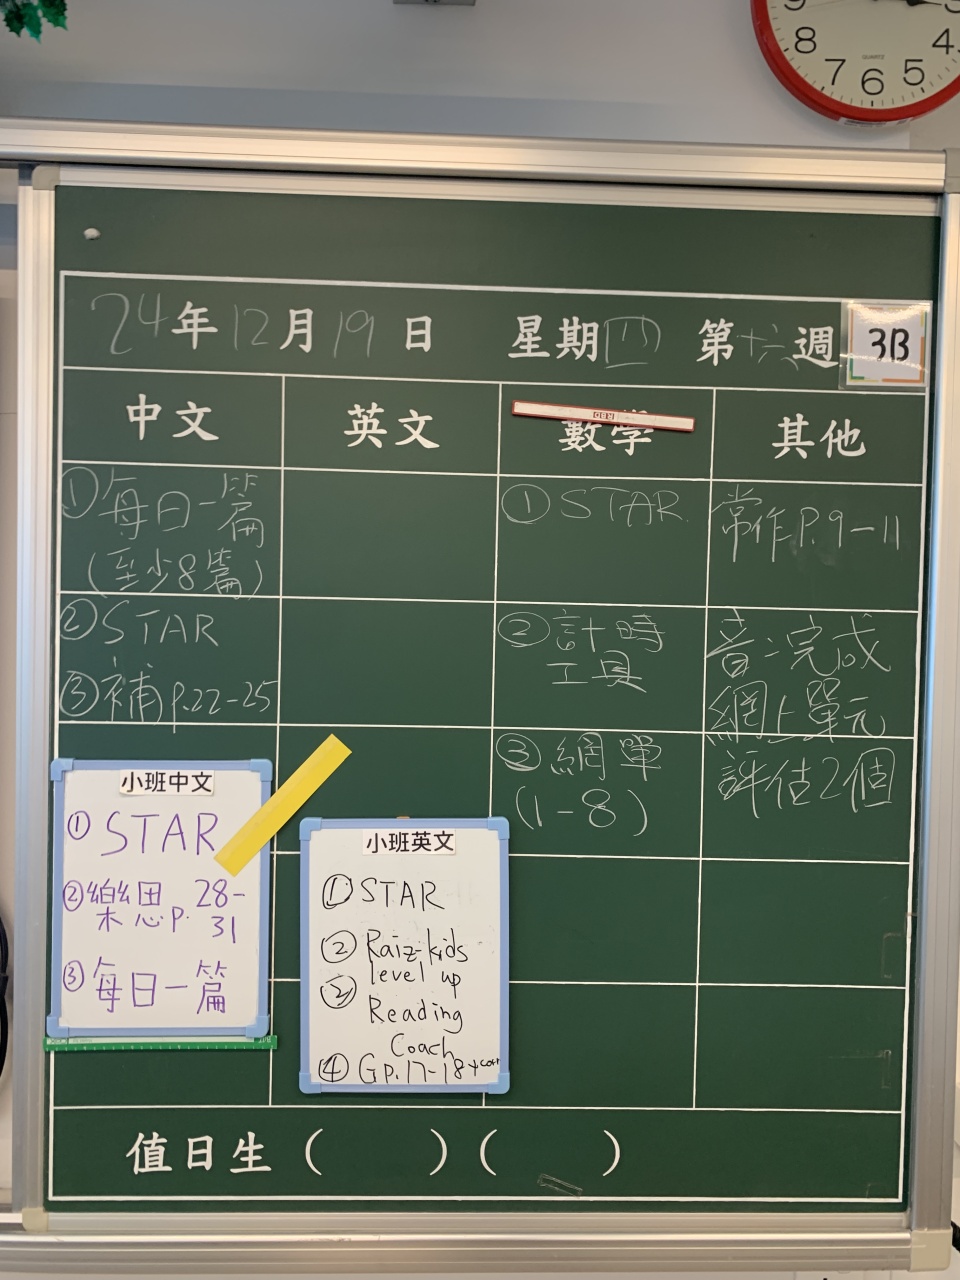 9
8
7
6
5
4
QUARTZ
24年12月19日 星期四 第十六週
3B
中文
英文
數學
其他
①每日一篇
(至少8篇)
②STAR
③補p.22-25
①STAR
②計時
工具
③網單
(1-8)
常作P.9-11
音:完成
網上單元
評估2個
小班中文
①STAR
②樂思p. 28-
31
③每日一篇
小班英文
①STAR
②Raiz-kids
level up
③Reading
Coach
④Gp.17-18+corr
值日生( )( )